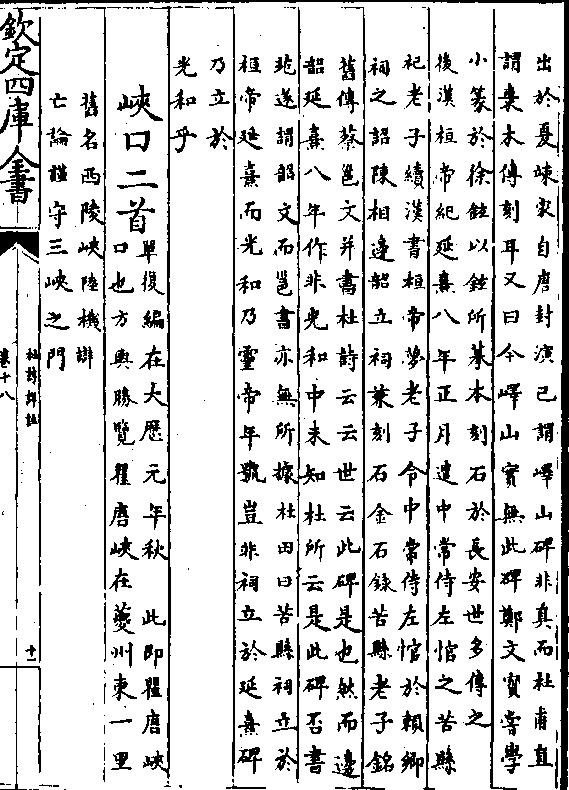 出於夏竦家自唐封演已謂嶧山碑非真而杜甫直
謂棗木傳刻耳又曰今嶧山實無此碑鄭文寳嘗學
小篆於徐鉉以鉉所摹本刻石於長安世多傳之
後漢桓帝紀延熹八年正月遣中常侍左悺之苦縣
祀老子續漢書桓帝夢老子令中常侍左悺於賴鄉
祠之詔陳相邉韶立祠兼刻石金石錄苦縣老子銘
舊傳蔡邕文并書杜詩云云世云此碑是也然而邉
韶延熹八年作非光和中未知杜所云是此碑否書
苑遂謂韶文而邕書亦無所據杜田曰苦縣祠立於
桓帝延熹而光和乃靈帝年號豈非祠立於延熹碑
乃立於
光和乎
峽口二首
單復編在大歷元年秋　此即瞿唐峽
口也方輿勝覽瞿唐峽在夔州東一里
舊名西陵峽陸機辯
亡論謹守三峽之門
欽定四庫全書
杜詩詳註
卷十八
十一